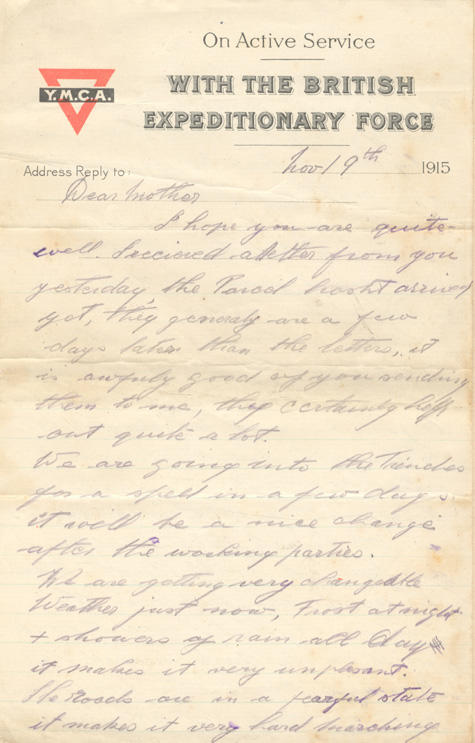 On Active Service
WITH THE BRITISH
EXPEDITIONARY FORCE
Y.M.C.A.
Address Reply to:
Nov 19th 1915
Dear Mother
I hope you are quite
well. I recieved a letter from you
yesterday the Parcel hasht arrived
yet, they generaly are a few
days later than the letters, it
is awfuly good of you sending
them to me, they certainly help
out quite a lot.
We are going into the Trenches
for a spell in a few days
it will be a nice change
after the working parties.
We are getting very changeable
Weather just now, Frost at night
+ showers of rain all day
it makes it very unplesant.
The roads are in a fearful state
it makes it very hard marching